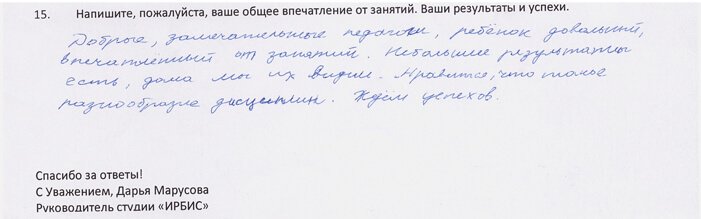 15. Напишите, пожалуйста, ваше общее впечатление от занятий. Ваши результаты и успехи.
Добрые, замечательные педагоги, ребёнок довольный,
впечатленный от занятий. Небольшие результаты
есть, дома мы их видим. Нравится, что такое
разнообразие дисциплин. Ждём успехов.
Спасибо за ответы!
С Уважением, Дарья Марусова
Руководитель студии «ИРБИС»